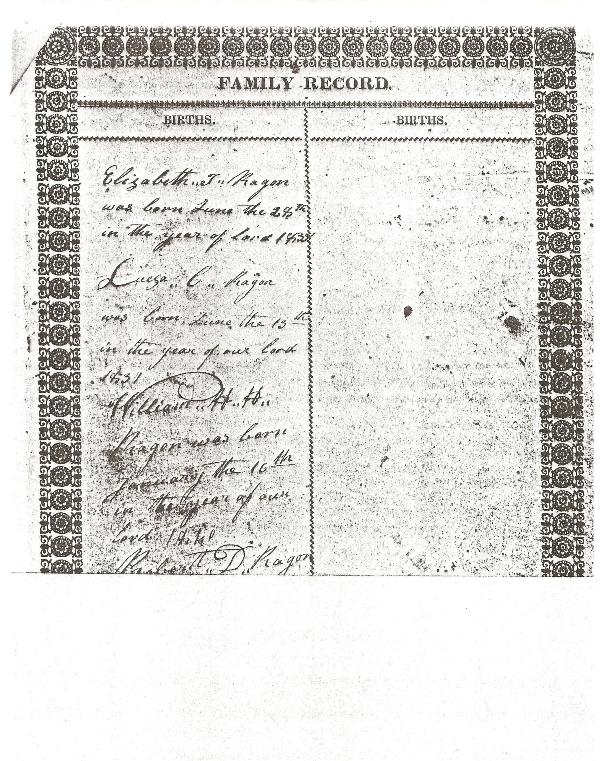 FAMILY RECORD.
BIRTHS.
BIRTHS.
Elizabeth,, J,, Ragon
was born June the 28th
in the year of lord
C,, Ragon
was born June the 13th
in the year of our lord
1831
William,, H,, H,,
Ragon was born
January the 16th
in the year of our
lord 1840
Robert,, D,, Ragon